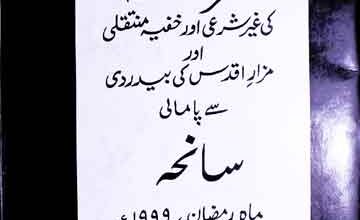 کی غیر شرعی اور خفیہ منتقلی
اور
مزارِ اقدس کی بیدردی
سے پامالی
سانحہ
ماہ رمضان ، ۱۹۹۹ء